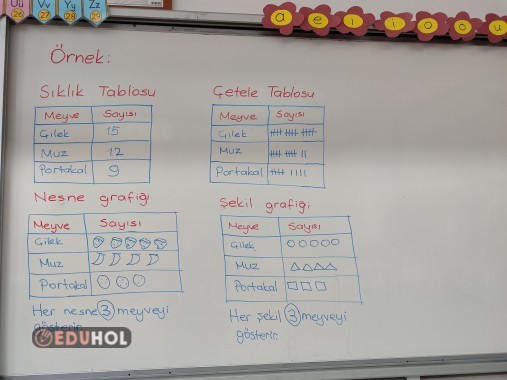 Üü Vv Yy Zz
26 27 28 29
a e ı i o ö u
Örnek:
Sıklık Tablosu
Meyve Sayısı
Çilek 15
Muz 12
Portakal 9
Çetele Tablosu
Meyve Sayısı
Çilek
Muz
Portakal
Nesne grafiği
Meyve Sayısı
Çilek
Muz
Portakal
Her nesne 3 meyveyi
gösterir.
Şekil grafiği
Meyve Sayısı
Çilek
Muz
Portakal
Her şekil 3 meyveyi
gösterir.
EDUHOL